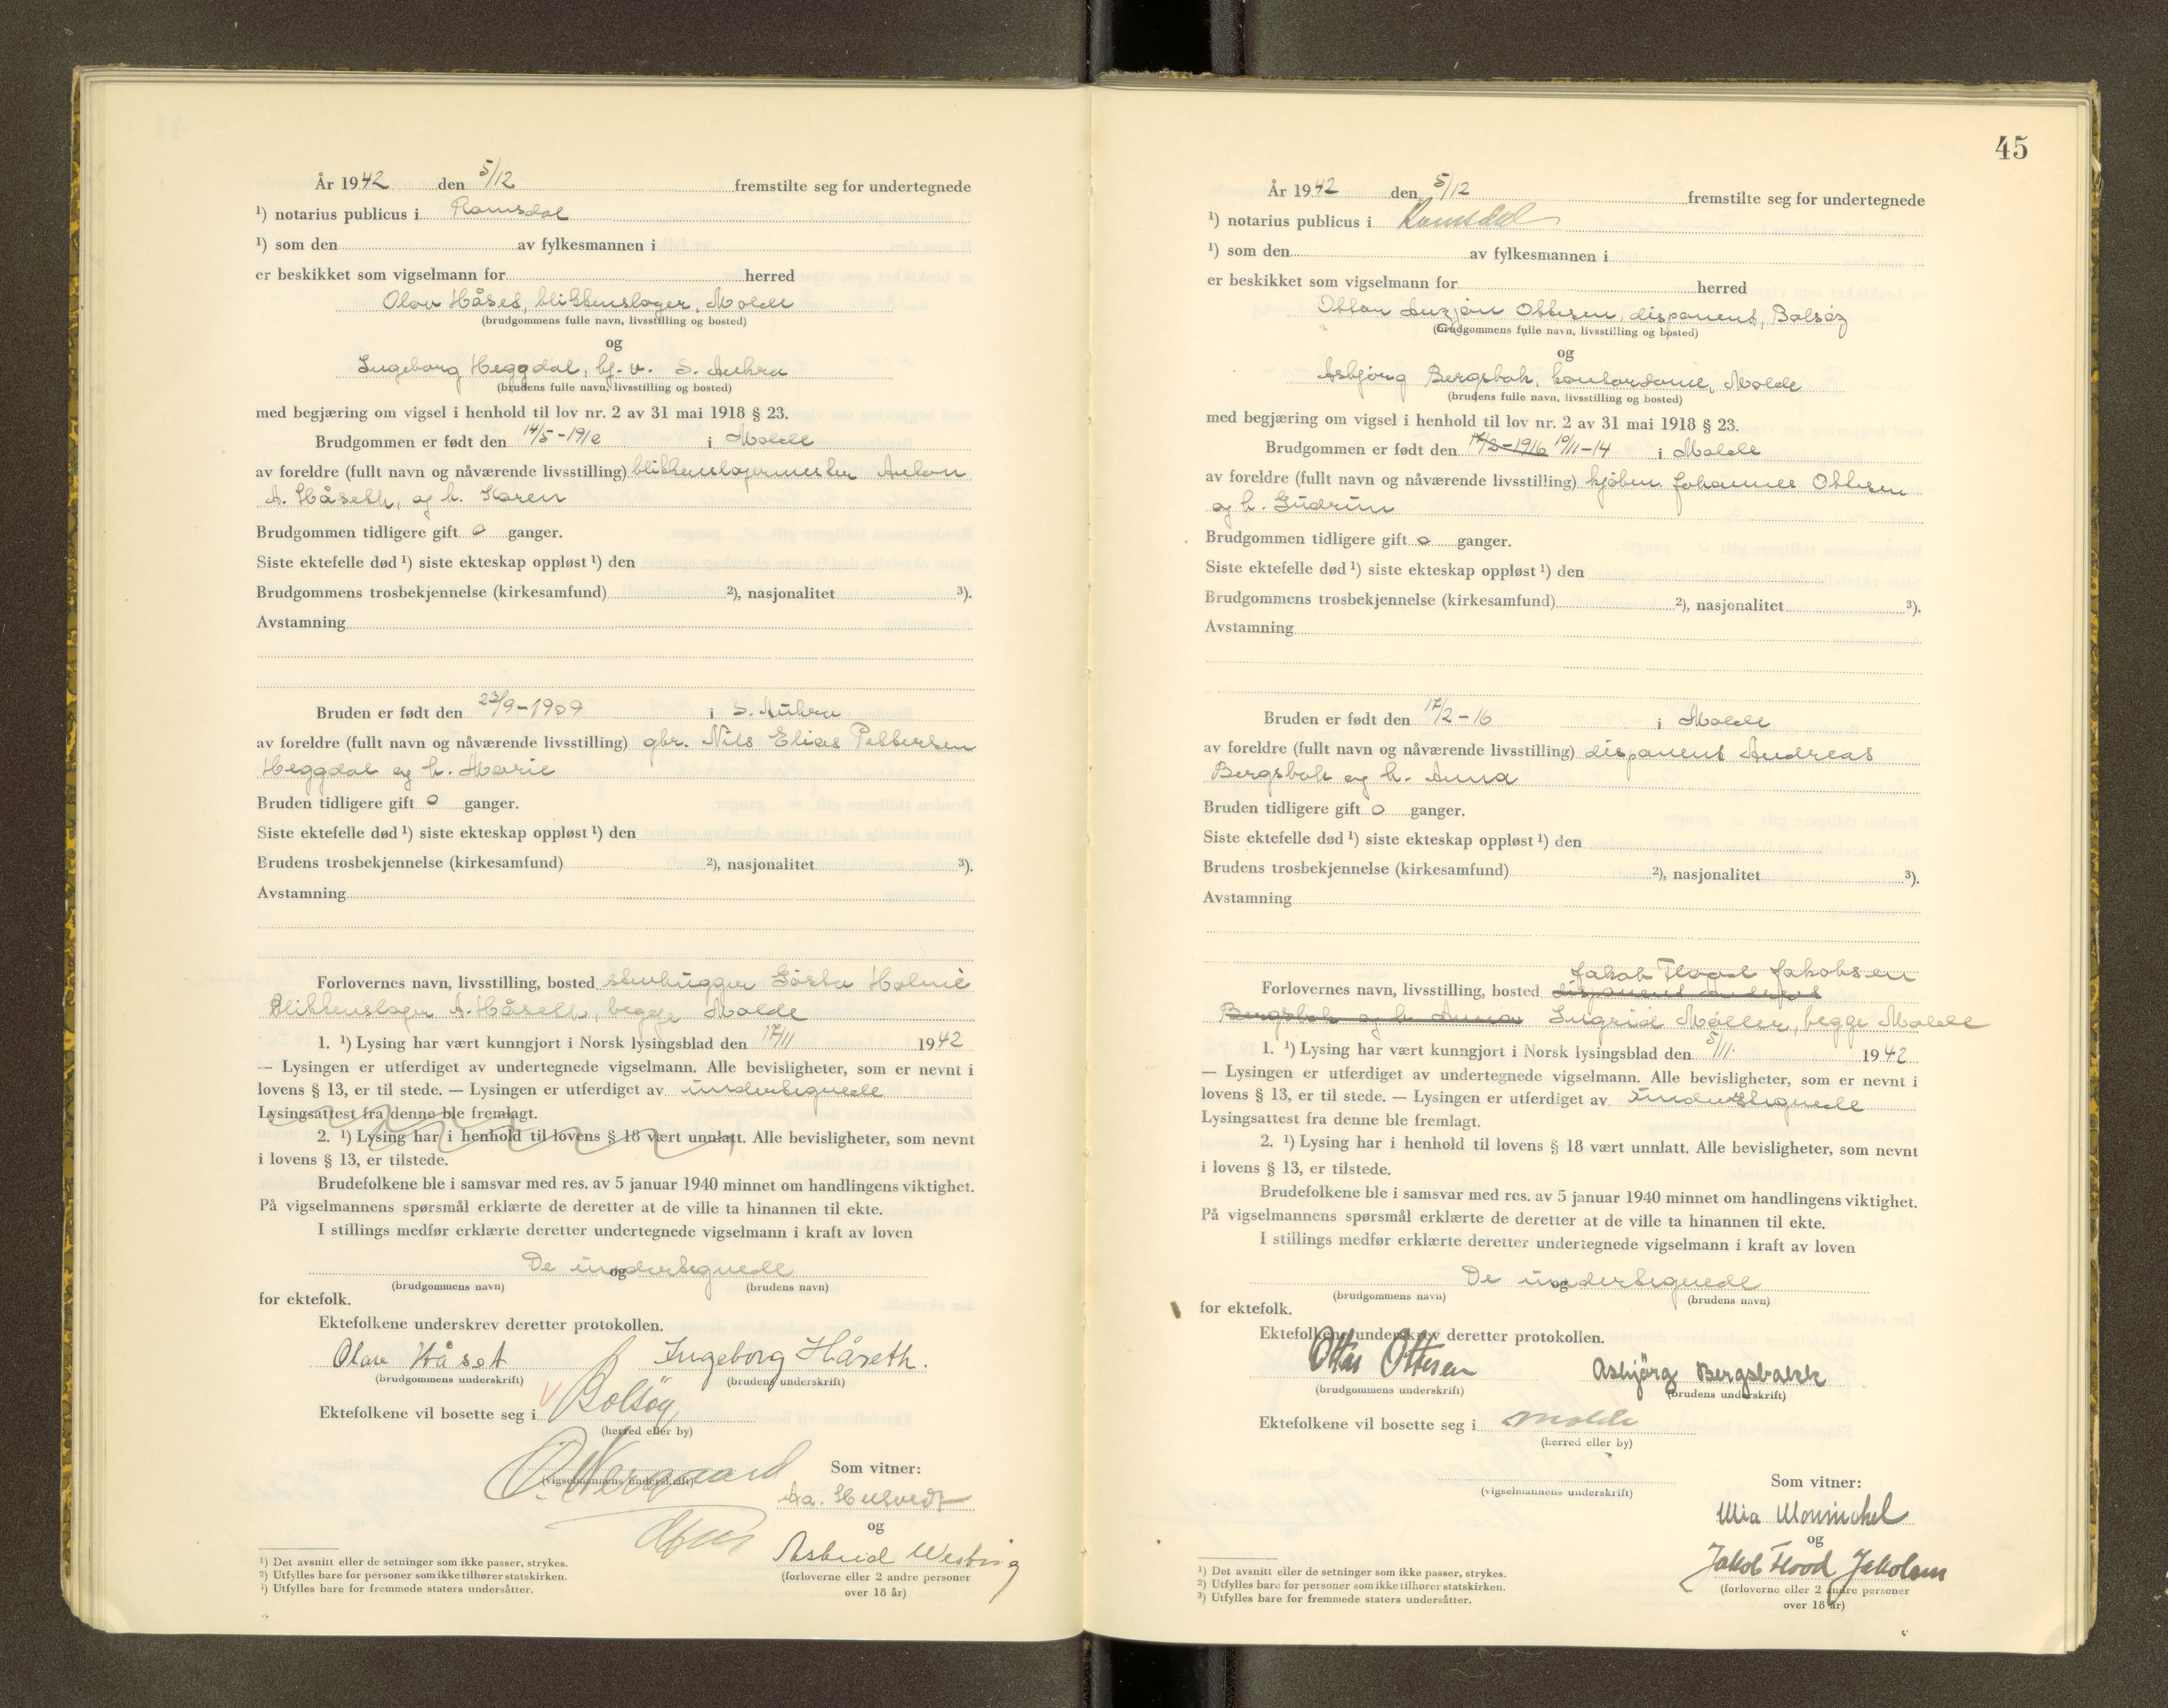 År 1942 den 5/12 fremstilte seg for undertegnede
¹) notarius publicus i Romsdal
¹) som den av fylkesmannen i
er beskikket som vigselmann for herred
Olav Håset, blikkenslager, Molde
(brudgommens fulle navn, livsstilling og bosted)
og
Ingeborg Heggdal, hf. v. S. Aukra
(brudens fulle navn, livsstilling og bosted)
med begjæring om vigsel i henhold til lov nr. 2 av 31 mai 1918 § 23.
Brudgommen er født den 14/5-1912 i Molde
av foreldre (fullt navn og nåværende livsstilling) blikkenslagermester Anton
A. Håseth, og h. Karen
Brudgommen tidligere gift 0 ganger.
Siste ektefelle død ¹) siste ekteskap oppløst ¹) den
Brudgommens trosbekjennelse (kirkesamfund) ²), nasjonalitet ³).
Avstamning
Bruden er født den 23/9-1909 i S. Aukra
av foreldre (fullt navn og nåværende livsstilling) gbr. Nils Elias Pettersen
Heggdal og h. Marie
Bruden tidligere gift 0 ganger.
Siste ektefelle død ¹) siste ekteskap oppløst ¹) den
Brudens trosbekjennelse (kirkesamfund) ²), nasjonalitet ³).
Avstamning
Forlovernes navn, livsstilling, bosted stenhugger Gösta Holmé
Blikkenslager A. Håseth, begge Molde
1. ¹) Lysing har vært kunngjort i Norsk lysingsblad den 17/11 1942
— Lysingen er utferdiget av undertegnede vigselmann. Alle bevisligheter, som er nevnt i
lovens § 13, er til stede. — Lysingen er utferdiget av undertegnede
Lysingsattest fra denne ble fremlagt.
2. ¹) Lysing har i henhold til lovens § 18 vært unnlatt. Alle bevisligheter, som nevnt
i lovens § 13, er tilstede.
Brudefolkene ble i samsvar med res. av 5 januar 1940 minnet om handlingens viktighet.
På vigselmannens spørsmål erklærte de deretter at de ville ta hinannen til ekte.
I stillings medfør erklærte deretter undertegnede vigselmann i kraft av loven
De undertegnede
og
(brudgommens navn) (brudens navn)
for ektefolk.
Ektefolkene underskrev deretter protokollen.
Olav Håset Ingeborg Håseth.
(brudgommens underskrift) (brudens underskrift)
Ektefolkene vil bosette seg i Bolsøy
(herred eller by)
(vigselmannens underskrift)
Som vitner:
og
Astrid
(forloverne eller 2 andre personer
over 18 år)
¹) Det avsnitt eller de setninger som ikke passer, strykes.
²) Utfylles bare for personer som ikke tilhører statskirken.
³) Utfylles bare for fremmede staters undersåtter.
45
År 1942 den 5/12 fremstilte seg for undertegnede
¹) notarius publicus i Romsdal
¹) som den av fylkesmannen i
er beskikket som vigselmann for herred
Ottar Ottesen, disponent, Bolsøy
(brudgommens fulle navn, livsstilling og bosted)
og
Asbjörg Bergsbak, kontordame, Molde
(brudens fulle navn, livsstilling og bosted)
med begjæring om vigsel i henhold til lov nr. 2 av 31 mai 1918 § 23.
Brudgommen er født den 17/2-1916 19/11-14 i Molde
av foreldre (fullt navn og nåværende livsstilling) kjøbm. Johannes Ottesen
og h. Gudrun
Brudgommen tidligere gift 0 ganger.
Siste ektefelle død ¹) siste ekteskap oppløst ¹) den
Brudgommens trosbekjennelse (kirkesamfund) ²), nasjonalitet ³).
Avstamning
Bruden er født den 17/2-16 i Molde
av foreldre (fullt navn og nåværende livsstilling) disponent Andreas
Bergsbak og h. Anna
Bruden tidligere gift 0 ganger.
Siste ektefelle død ¹) siste ekteskap oppløst ¹) den
Brudens trosbekjennelse (kirkesamfund) ²), nasjonalitet ³).
Avstamning
Jakob Flood Jakobsen
Forlovernes navn, livsstilling, bosted disponent Andreas
Bergsbak og h. Anna Ingrid Møller, begge Molde
1. ¹) Lysing har vært kunngjort i Norsk lysingsblad den 5/11. 1942
— Lysingen er utferdiget av undertegnede vigselmann. Alle bevisligheter, som er nevnt i
lovens § 13, er til stede. — Lysingen er utferdiget av undertegnede
Lysingsattest fra denne ble fremlagt.
2. ¹) Lysing har i henhold til lovens § 18 vært unnlatt. Alle bevisligheter, som nevnt
i lovens § 13, er tilstede.
Brudefolkene ble i samsvar med res. av 5 januar 1940 minnet om handlingens viktighet.
På vigselmannens spørsmål erklærte de deretter at de ville ta hinannen til ekte.
I stillings medfør erklærte deretter undertegnede vigselmann i kraft av loven
De undertegnede
og
(brudgommens navn) (brudens navn)
for ektefolk.
Ektefolkene underskrev deretter protokollen.
Ottar Ottesen Asbjörg Bergsbakk
(brudgommens underskrift) (brudens underskrift)
Ektefolkene vil bosette seg i Molde
(herred eller by)
(vigselmannens underskrift)
Som vitner:
Mia
og
Jakob Flood Jakobsen
(forloverne eller 2 andre personer
over 18 år)
¹) Det avsnitt eller de setninger som ikke passer, strykes.
²) Utfylles bare for personer som ikke tilhører statskirken.
³) Utfylles bare for fremmede staters undersåtter.